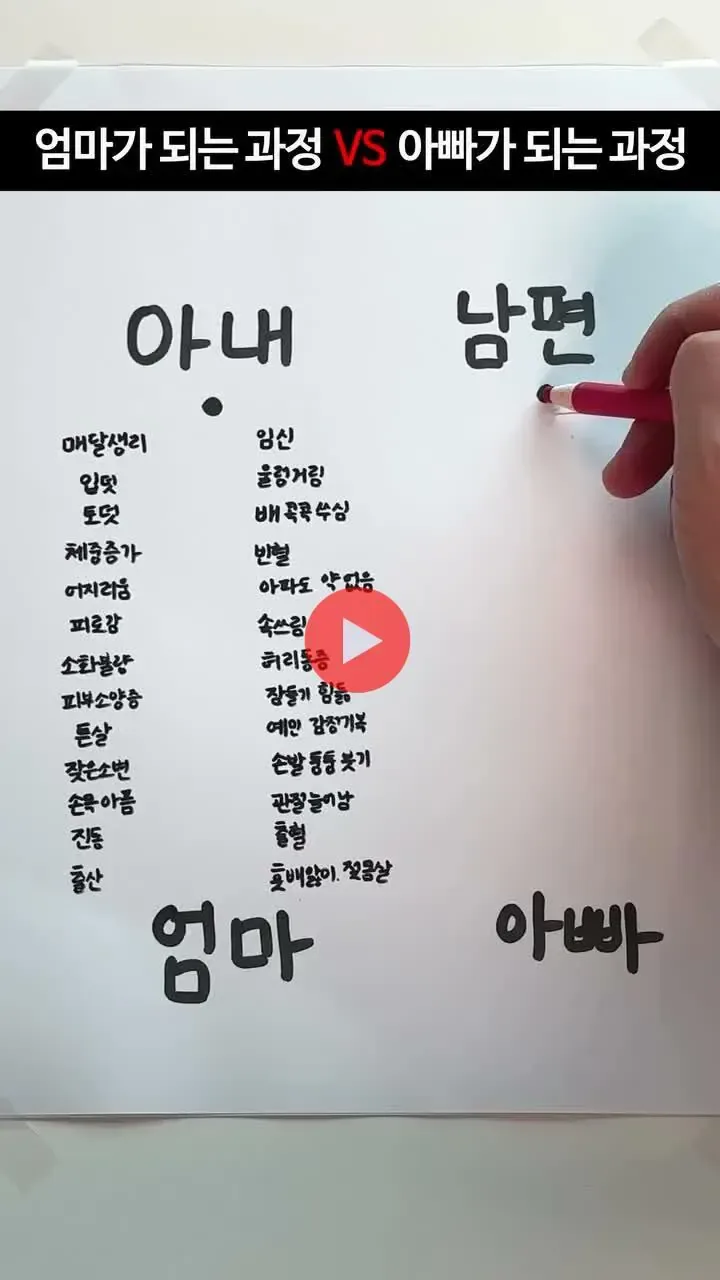 엄마가 되는 과정 VS 아빠가 되는 과정
아내 남편
매달생리 임신
입덧 울렁거림
토덧 배 콕콕 쑤심
체중증가 빈혈
어지러움 아파도 약 없음
피로감 속쓰림
소화불량 허리통증
피부소양증 잠들기 힘듦
튼살 예민 감정기복
잦은소변 손발 퉁퉁 붓기
손목아픔 관절늘어남
진통 출혈
출산 훗배앓이. 젖몸살
엄마 아빠